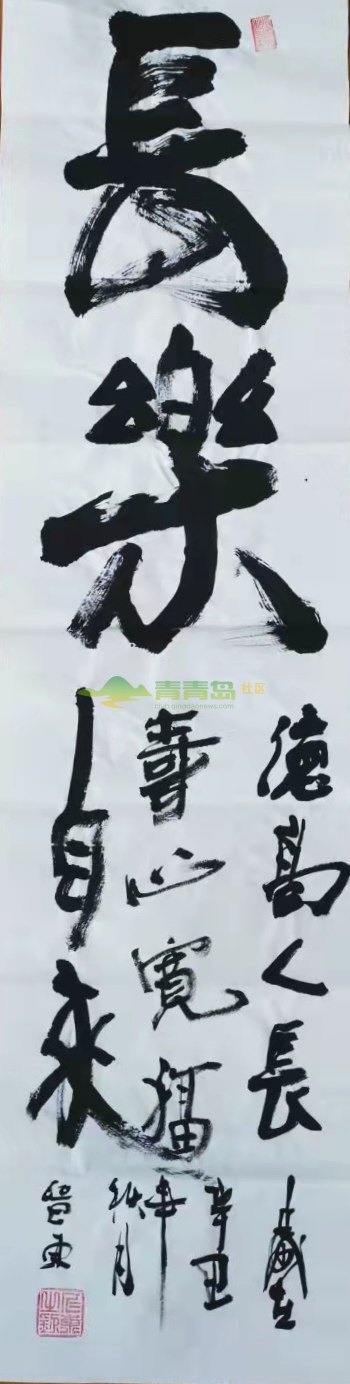 長樂
德高人長
壽心寬福
自来
歲在
辛丑
年
秋月
青青岛 社区
club.qingdaonews.com